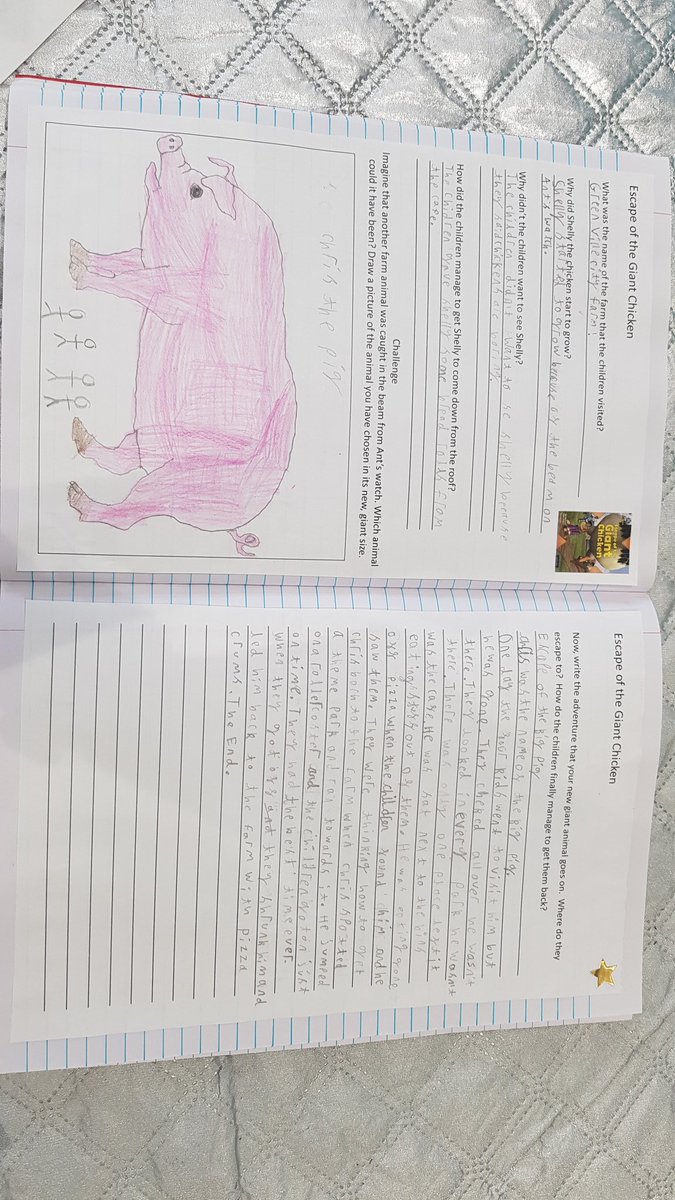 Escape of the Giant Chicken
What was the name of the farm that the children visited?
Green Ville city farm!
Why did Shelly the chicken start to grow?
Shelly started to grow because of the beam on
Ant's watch.
Why didn't the children want to see Shelly?
The children didn't want to se shelly because
they said chickens are boring.
How did the children manage to get Shelly to come down from the roof?
The children gave shelly some bread rolls from
the cafe.
Giant
Chicken
Challenge
Imagine that another farm animal was caught in the beam from Ant's watch. Which animal
could it have been? Draw a picture of the animal you have chosen in its new, giant size.
chris the pig
Escape of the Giant Chicken
Now, write the adventure that your new giant animal goes on. Where do they
escape to? How do the children finally manage to get them back?
Escape of the big pig
chris was the name of the big pig.
One day the four kids went to visit him but
he was gone. They cheked all over he wasn't
there. They looked in every park he wasn't
there. There was only one place left it
was the cafe. He was sat next to the bins
eating stuff out of them. He was eating gone
off pizza when the children found him and he
saw them. They were thinking how to get
chris bach to the farm when chris spotted
a theme park and ran towards it. He jumped
on a rollercoster and the children got on just
on time. They had the best time ever.
When they got off and they shrunk him and
led him back to the farm with pizza
crums. The End.